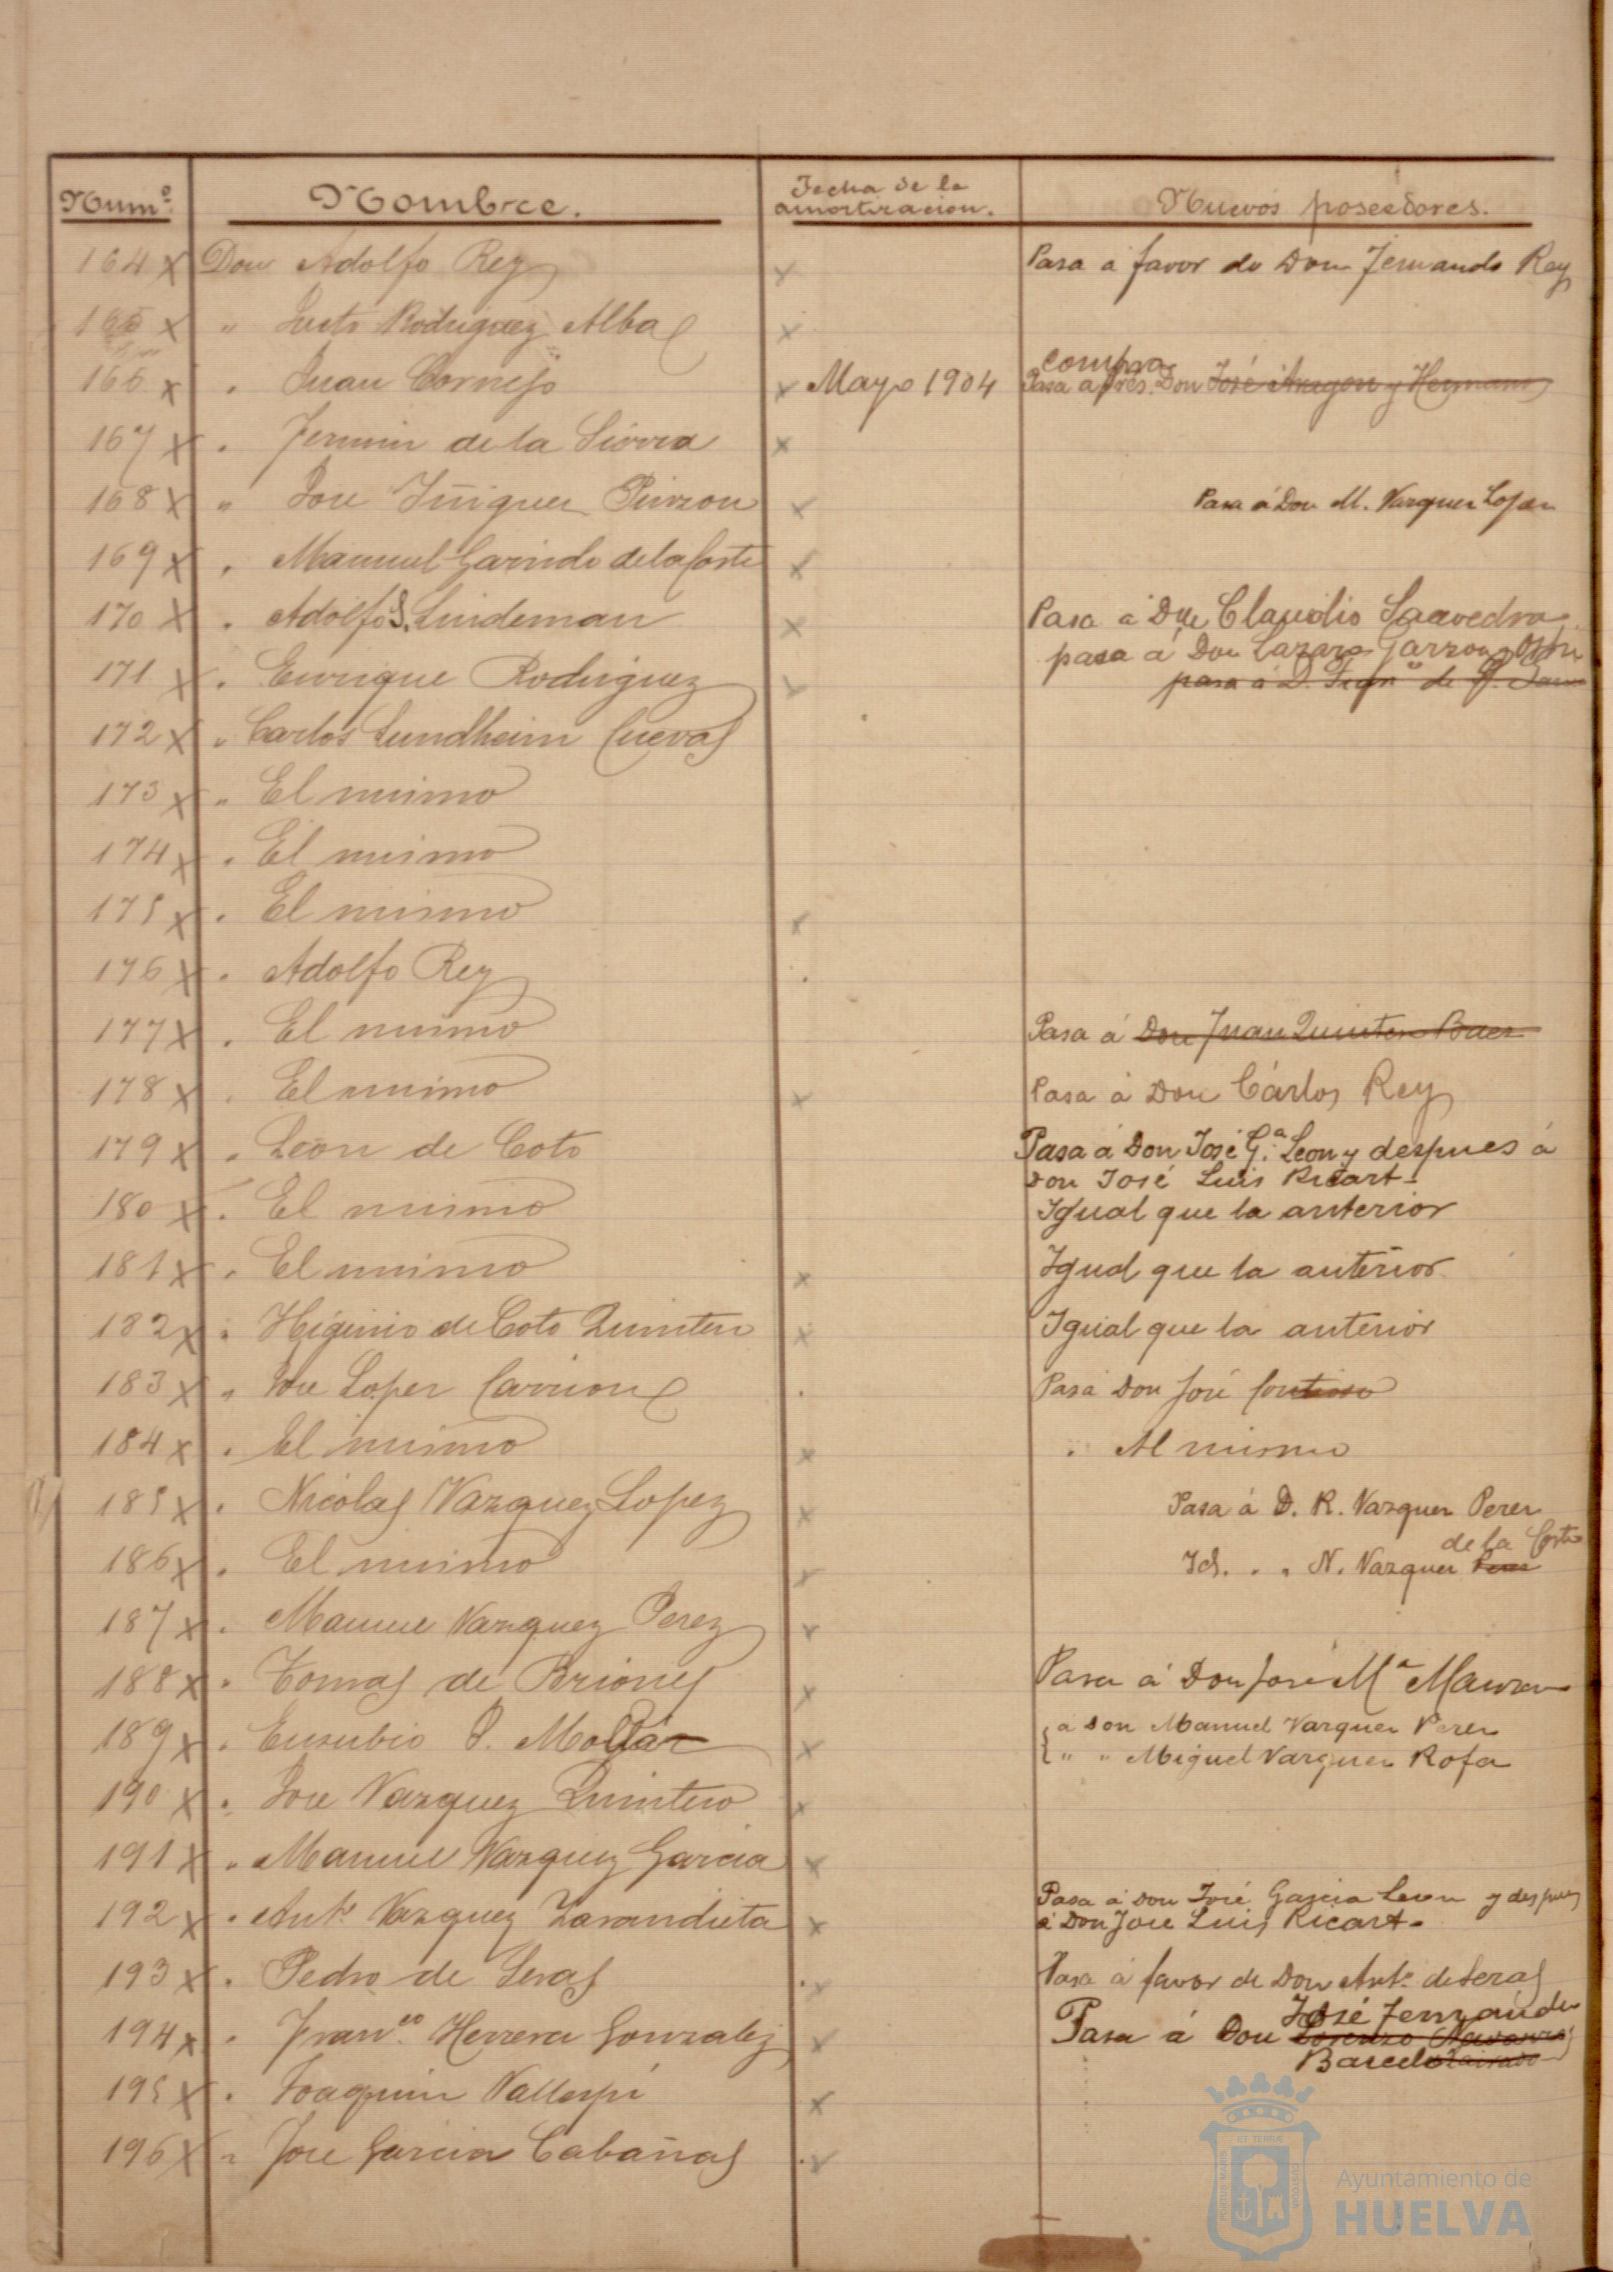 Num.º Nombre. Fecha de la amortizacion. Nuevos poseedores.
164 x Don Adolfo Rey x Pasa a favor de Don Fernando Rey
165 x " Justo Rodriguez Alba x
compra
166 x " Juan Cornejo x Mayo 1904 Pasa a Don José Aragon y Hermano
167 x " Fermin de la Sierra x
168 x " Jose Iñiguez Pinzon x Pasa á Don M. Vazquez Lopez
169 x " Manuel Garrido de la Corte x
170 x " Adolfo S. Lindeman x Pasa á Claudio Saavedra
pasa á Don Lazaro Garzon
171 x " Enrique Rodriguez x pasa á D. de
172 x " Carlos Sundheim Cuevas
173 x " El mismo
174 x " El mismo
175 x " El mismo x
176 x " Adolfo Rey .
177 x " El mismo Pasa á Don Juan Quintero Baez
178 x " El mismo x Pasa á Don Cárlos Rey
179 x " Leon de Coto Pasa á Don José G.ª Leon y despues á
Don José Luis Ricart-
180 x " El mismo Igual que la anterior
181 x " El mismo x Igual que la anterior
182 x " Higinio de Coto Quintero x Igual que la anterior
183 x " Jose Lopez Carrion . Pasa Don José
184 x " El mismo x " Al mismo
185 x " Nicolas Vazquez Lopez x Pasa á D. R. Vazquez Perez
de la Corte
186 x " El mismo x Id. . . N. Vazquez Perez
187 x " Manuel Vazquez Perez x
188 x " Tomas de Briones x Pasa á Don José Mª
189 x " Eusebio P. x { á Don Manuel Vazquez Perez
" " Miguel Vazquez Rofa
190 x " Jose Vazquez Quintero x
191 x " Manuel Vazquez Garcia x
Pasa á Don José Garcia Leon y despues
192 x " Antº Vazquez Zarandieta x á Don Jose Luis Ricart-
193 x " Pedro de Seras x Pasa á favor de Don Antº de Seras
José Fernandez
194 x " Franco Herrera Gonzalez x Pasa á Don Lorenzo
195 x " Joaquin Vallespi x
196 x " Jose Garcia Cabañas x
Ayuntamiento de
HUELVA